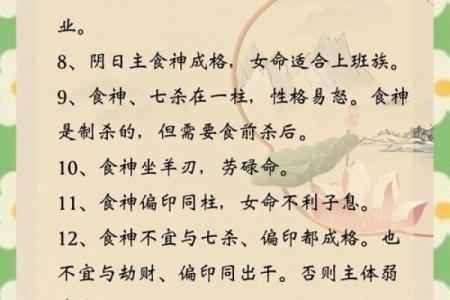 业。
8、阴日主食神成格，女命适合上班族。
9、食神、七杀在一柱，性格易怒。食神
是制杀的，但需要食前杀后。
10、食神坐羊刃，劳碌命。
11、食神偏印同柱，女命不利子息。
12、食神不宜与七杀、偏印都成格。也
不宜与劫财、偏印同出干。否则主体弱